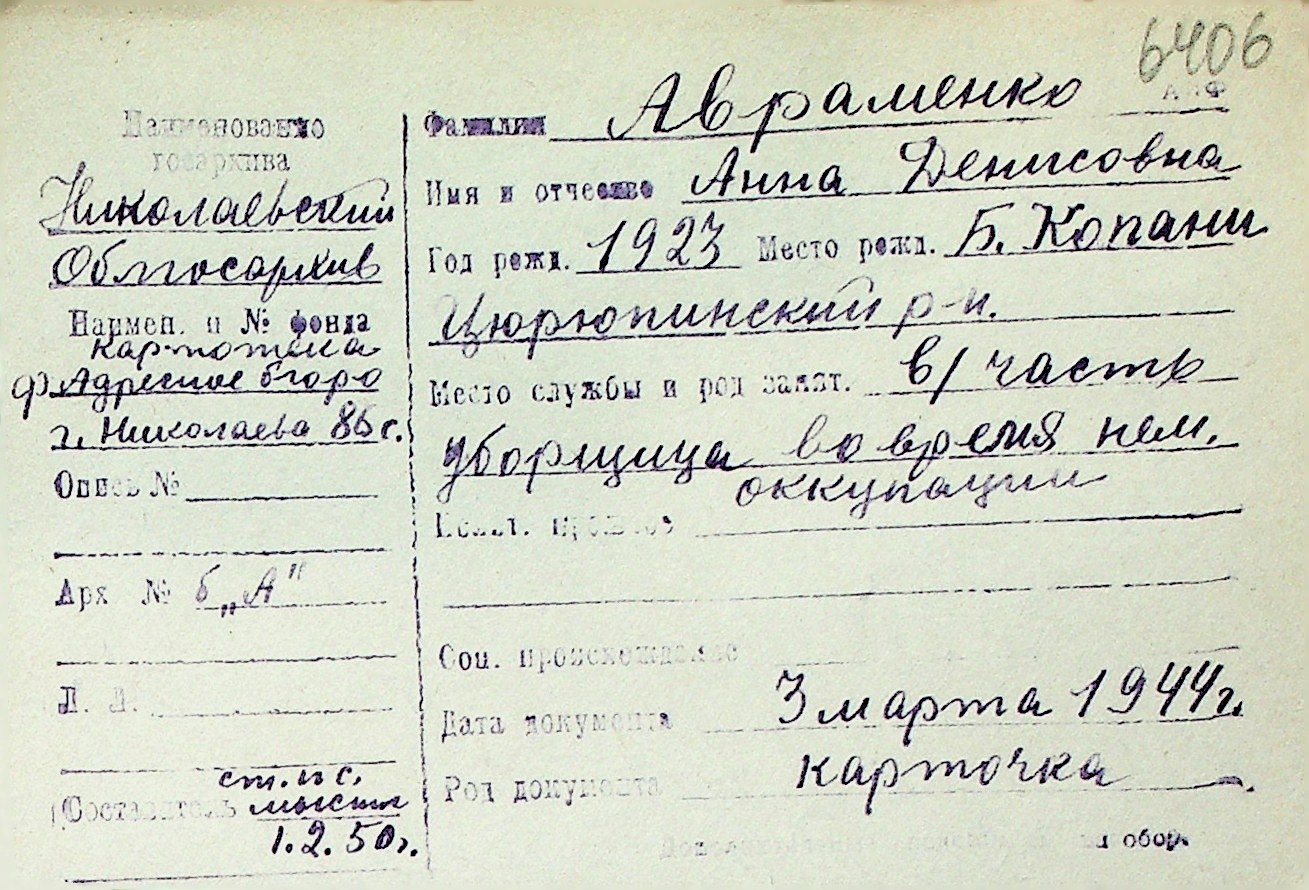 6406
Наименование
госархива
Николаевский
Облгосархив
Наимен. и № фонда
картотека
ф. Адресное бюро
г. Николаева 86 с.
Опись №
Арх № б „А"
Л. Л.
ст. н с.
Составитель
1.2.50г.
Фамилия Авраменко
Имя и отчество Анна Денисовна
Год рожд. 1923 Место рожд. Б. Копани
Цюрюпинский р-н.
Место службы и род занят. в/часть
уборщица во время нем.
оккупации
Соц. происхождение
Дата документа 3 марта 1944г.
Род документа карточка
на обор.